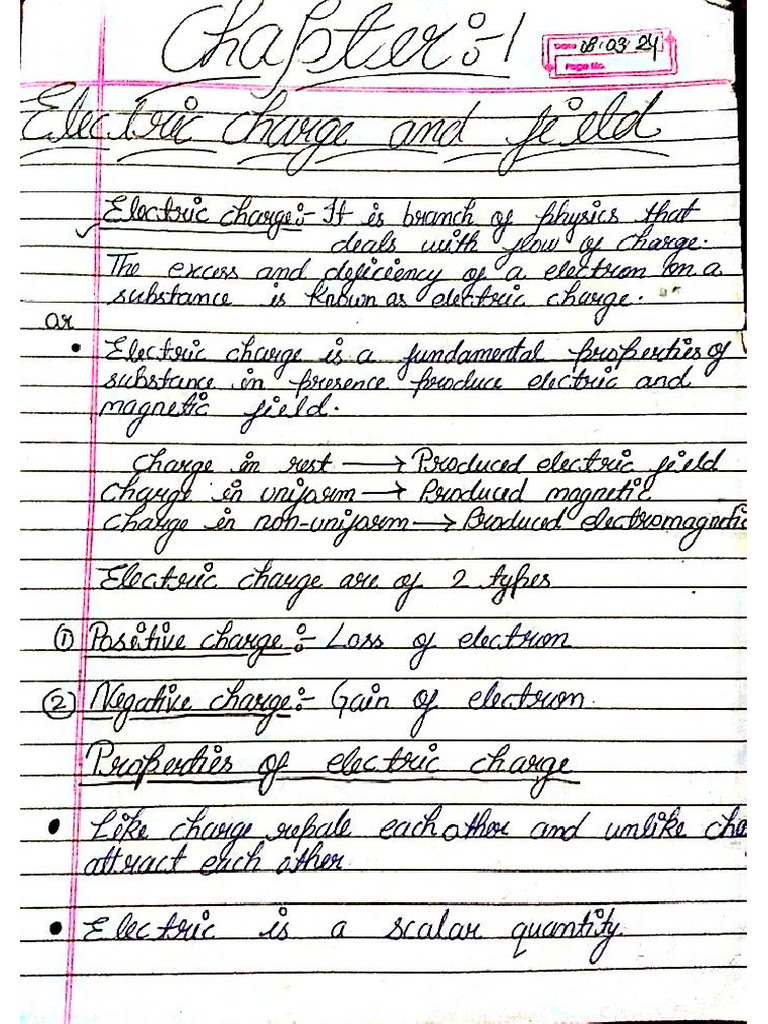 Chapter:-1
Date 08.03.24
Page No.
Electric charge and field
Electric charge:- It is branch of physics that
deals with flow of charge.
The excess and deficiency of a electron on a
substance is known as electric charge.
or
• Electric charge is a fundamental properties of
substance in presence produce electric and
magnetic field.
Charge in rest → Produced electric field
Charge in uniform → Produced magnetic
Charge in non-uniform → Produced electromagnetic
Electric charge are of 2 types
① Positive charge:- Loss of electron
② Negative charge:- Gain of electron.
Properties of electric charge
• Like charge repale each other and unlike cha
attract each other
• Electric is a scalar quantity.